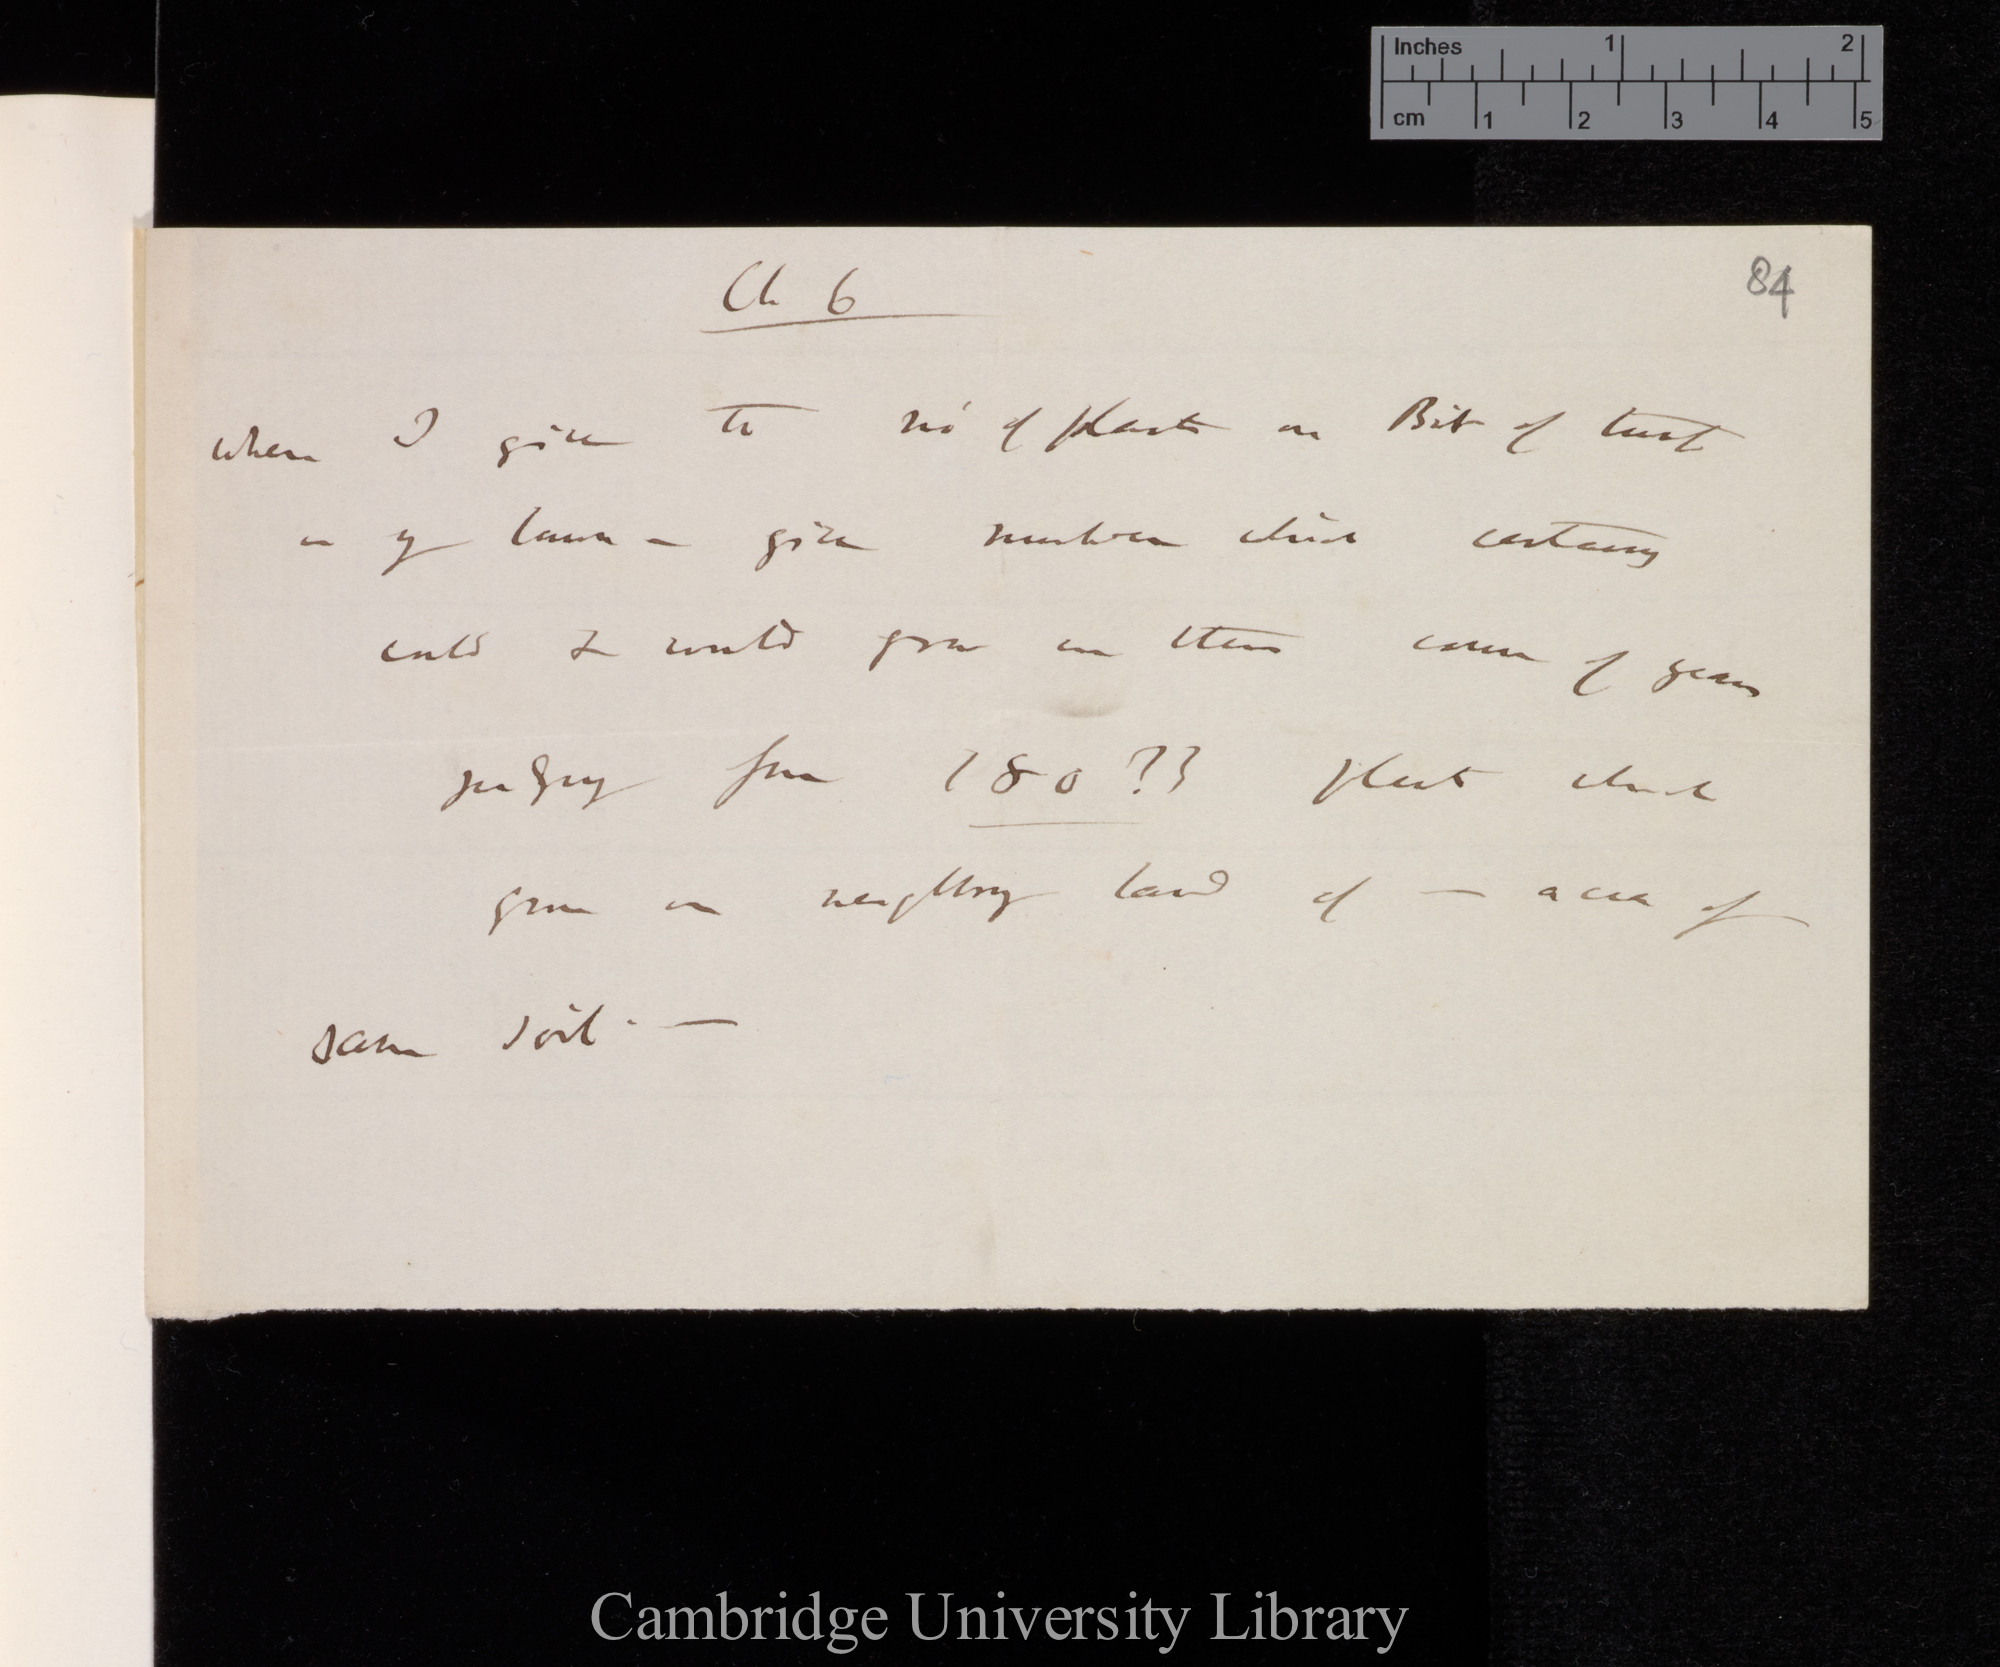 Inches 1 2
cm 1 2 3 4 5
84
Ch 6
When I give the no of plants on Bit of turf
in my lawn — give number which certainly
could & would grow in there course of years
judging from 180?? plants which
grow on neighbouring land of — acres of
same soil. —
Cambridge University Library